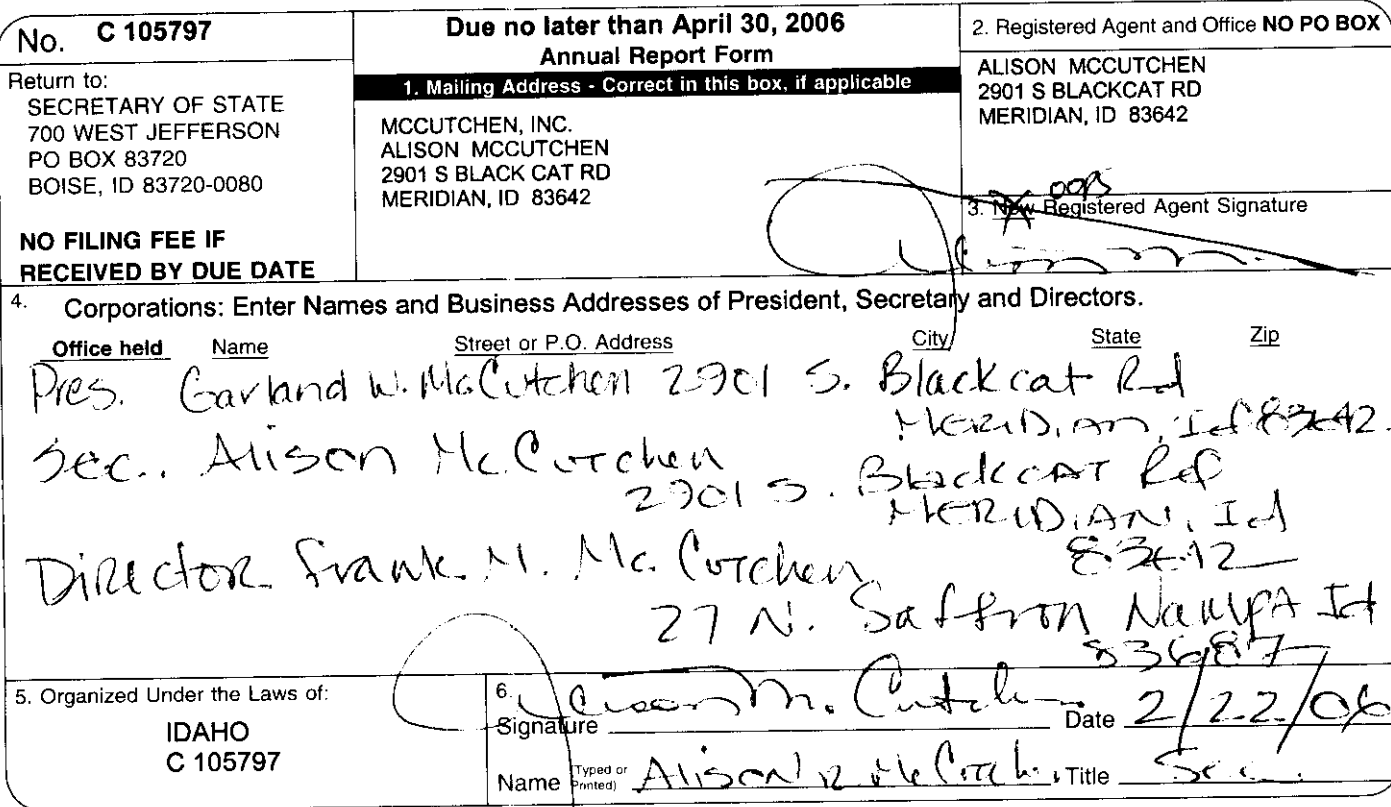 No. C 105797
Return to:
SECRETARY OF STATE
700 WEST JEFFERSON
PO BOX 83720
BOISE, ID 83720-0080
NO FILING FEE IF
RECEIVED BY DUE DATE
Due no later than April 30, 2006
Annual Report Form
1. Mailing Address - Correct in this box, if applicable
MCCUTCHEN, INC.
ALISON MCCUTCHEN
2901 S BLACK CAT RD
MERIDIAN, ID 83642
2. Registered Agent and Office NO PO BOX
ALISON MCCUTCHEN
2901 S BLACKCAT RD
MERIDIAN, ID 83642
oops
3. New Registered Agent Signature
4. Corporations: Enter Names and Business Addresses of President, Secretary and Directors.
Office held Name Street or P.O. Address City State Zip
Pres. Garland W. McCutchen 2901 S. Blackcat Rd
MERIDIAN, Id 83642.
Sec. Alison McCutchen
2901 S. Blackcat Rd
MERIDIAN, Id
83642
Director Frank M. McCutchen
27 N. Saffron Nampa Id
83687
5. Organized Under the Laws of:
IDAHO
C 105797
6.
Signature Date 2/22/06
Name (Typed or Printed) Alison McCutchen Title Sec.